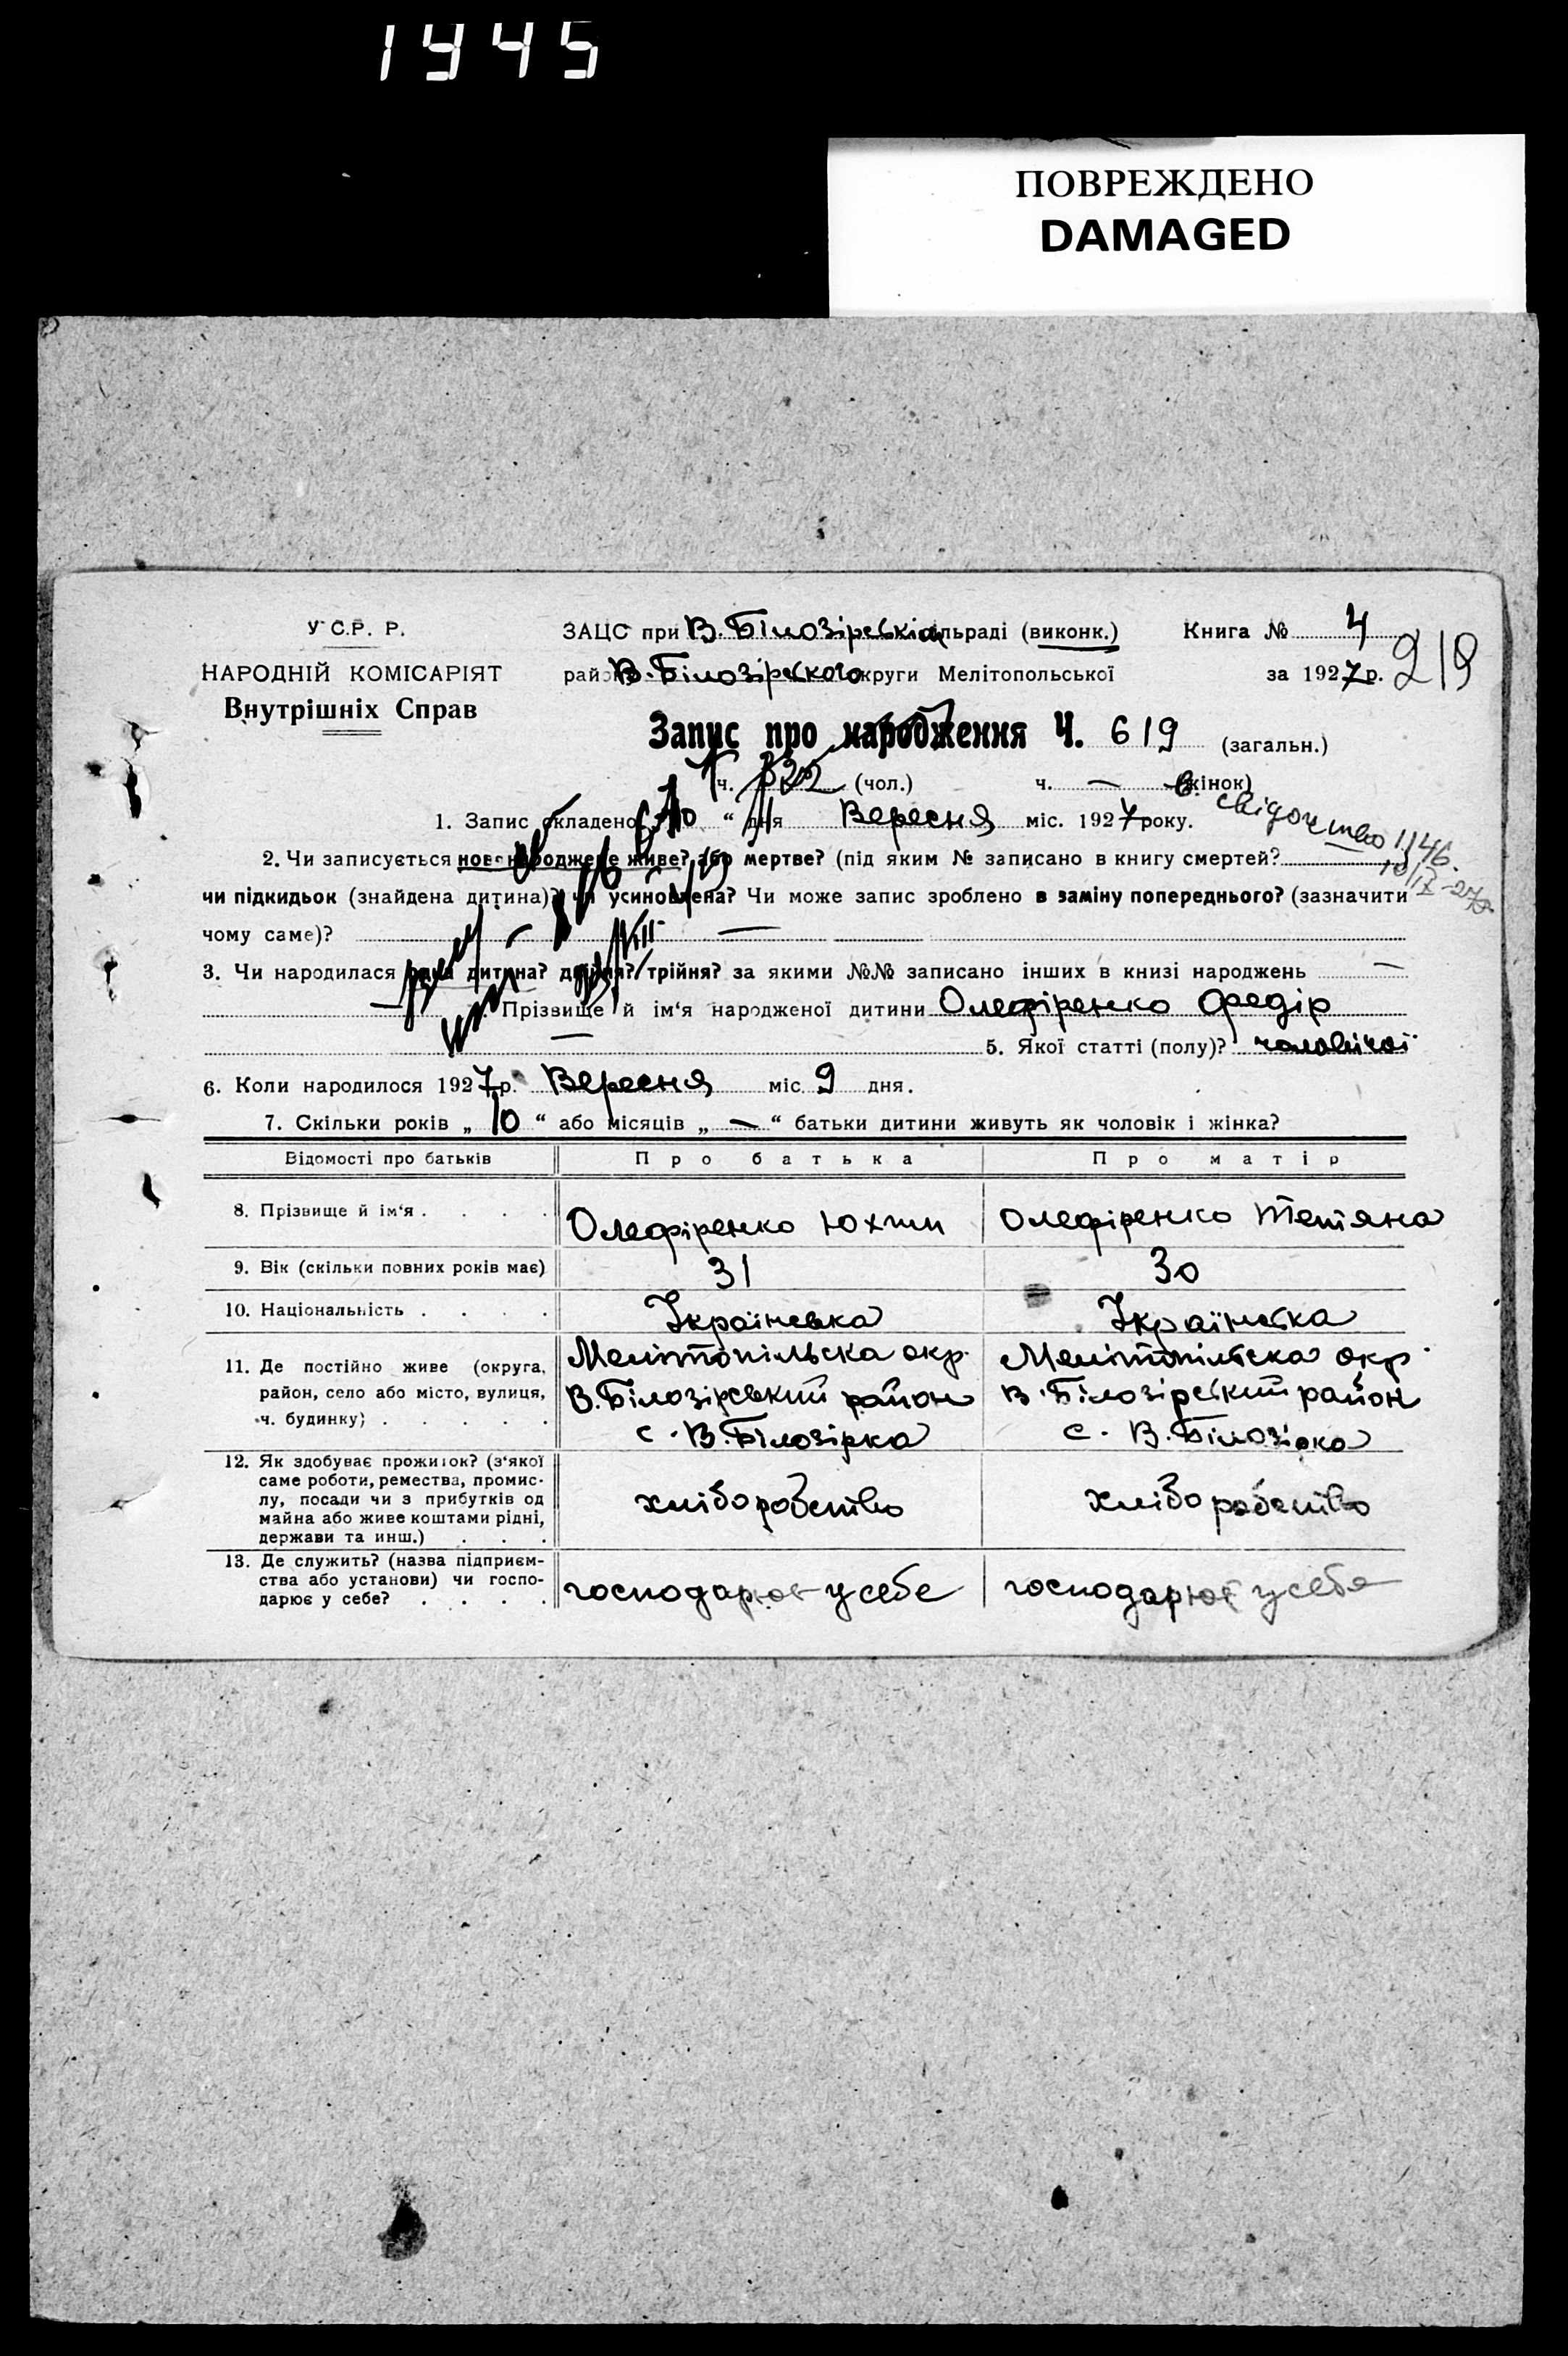 1945
ПОВРЕЖДЕНО
DAMAGED
У С.Р. Р.
НАРОДНІЙ КОМІСАРІЯТ
Внутрішніх Справ
ЗАЦС при В. Білозірській сільраді (виконк.)
Книга № 4
219
район В. Білозірського округи Мелітопольської
за 1927 р.
Запис про народження Ч. 619 (загальн.)
ч. 332 (чол.) ч. — (жінок)
свідоцтво 1146.
10/IX-27р.
1. Запис складено „10“ дня Вересня міс. 1927 року.
2. Чи записується новонароджене живе? або мертве? (під яким № записано в книгу смертей?
чи підкидьок (знайдена дитина)? чи усиновлена? Чи може запис зроблено в заміну попереднього? (зазначити
чому саме)? —
3. Чи народилася одна дитина? двійня? трійня? за якими №№ записано інших в книзі народжень —
Прізвище й ім‘я народженої дитини Олефіренко Федір
— 5. Якої статті (полу)? чоловічої
6. Коли народилося 1927 р. Вересня міс. 9 дня.
7. Скільки років „ 10 “ або місяців „ — “ батьки дитини живуть як чоловік і жінка?
Відомості про батьків Про батька Про матір
8. Прізвище й ім‘я . . . . Олефіренко Юхим Олефіренко Тетяна
9. Вік (скільки повних років має) 31 30
10. Національність . . . . Українська Українська
11. Де постійно живе (округа, Мелітопільска окр. Мелітопільска окр.
район, село або місто, вулиця, В. Білозірський район В. Білозірський район
ч. будинку) . . . . . с. В. Білозірка с. В. Білозірка
12. Як здобуває прожиток? (з‘якої
саме роботи, ремества, промис-
лу, посади чи з прибутків од хліборобство хліборобство
майна або живе коштами рідні,
держави та инш.) . . .
13. Де служить? (назва підприєм-
ства або установи) чи госпо- господарює у себе господарює у себе
дарює у себе? . . . .